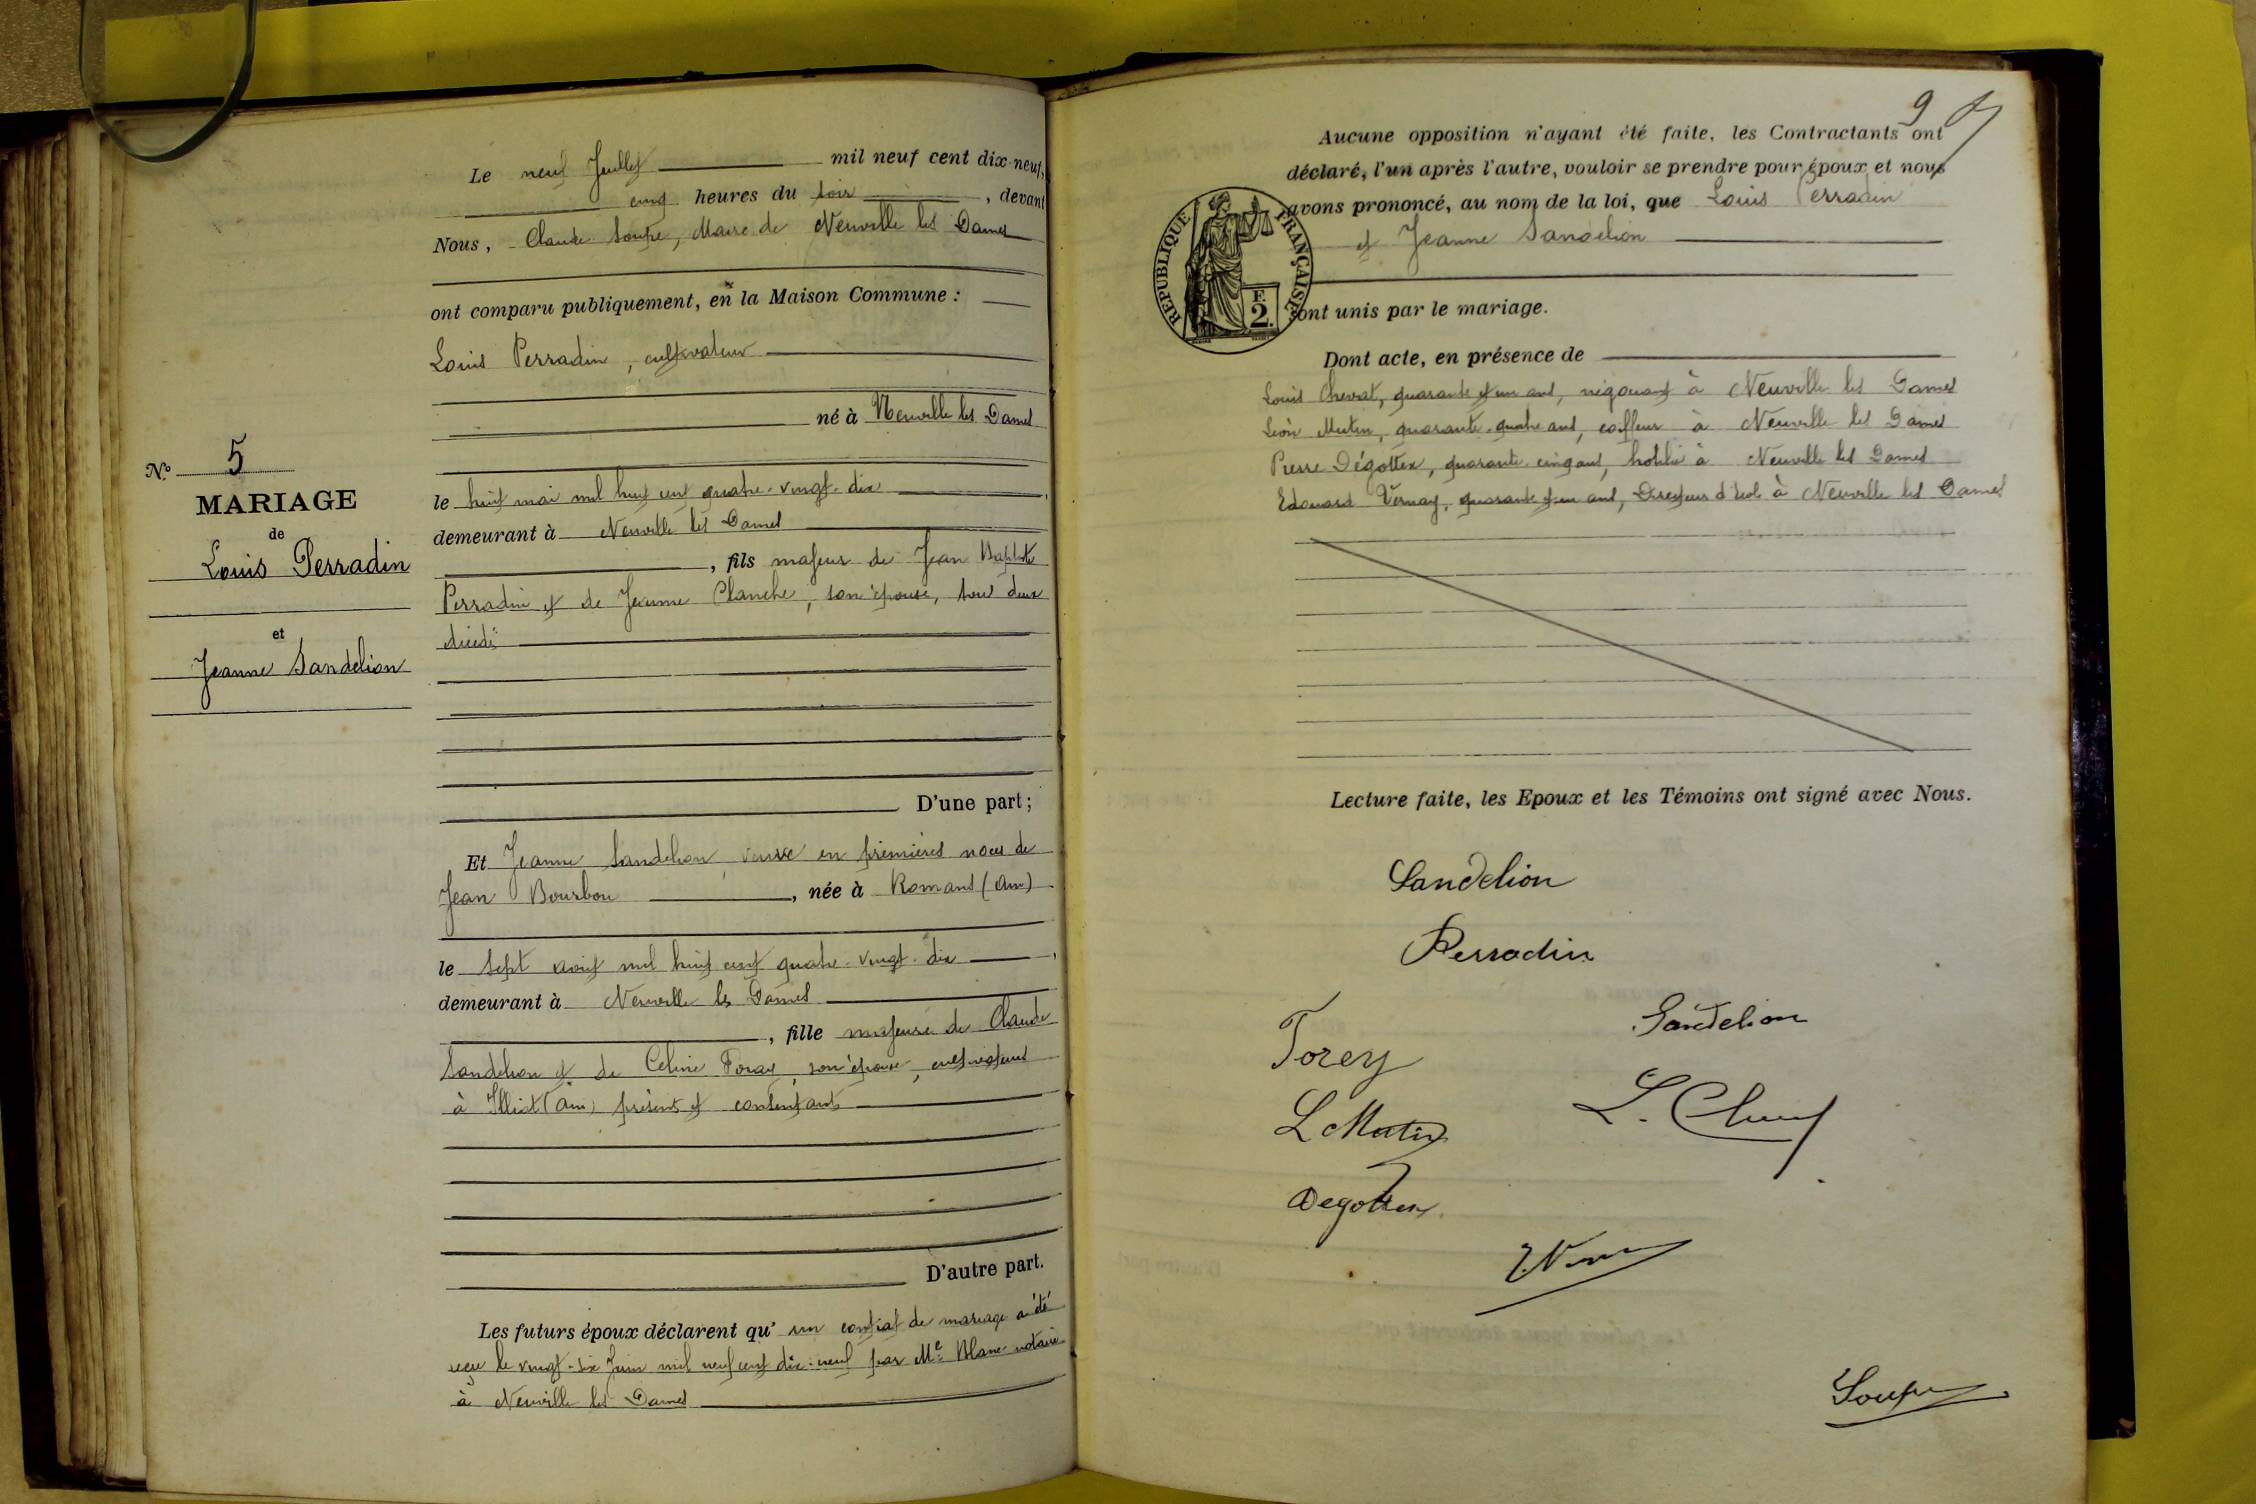 Le neuf Juillet mil neuf cent dix-neuf,
cinq heures du soir, devant
Nous, Claude Soupe, Maire de Neuville les Dames
ont comparu publiquement, en la Maison Commune :
Louis Perradin, cultivateur
né à Neuville les Dames
N° 5
MARIAGE
de
Louis Perradin
et
Jeanne Sandelion
le huit mai mil huit cent quatre-vingt-dix
demeurant à Neuville les Dames
, fils majeur de Jean Baptiste
Perradin et de Jeanne Planche, son épouse, tous deux
décédés
D'une part ;
Et Jeanne Sandelion, veuve en premières noces de
Jean Bourbon, née à Romans (Ain)
le sept août mil huit cent quatre-vingt-dix,
demeurant à Neuville les Dames
, fille majeure de Claude
Sandelion et de Celine Foray, son épouse, cultivateurs
à Illiat (Ain) présents et consentants
D'autre part.
Les futurs époux déclarent qu'un contrat de mariage a été
reçu le vingt-six Juin mil neuf cent dix-neuf par Me Blanc notaire
à Neuville les Dames
9
Aucune opposition n'ayant été faite, les Contractants ont
déclaré, l'un après l'autre, vouloir se prendre pour époux et nous
avons prononcé, au nom de la loi, que Louis Perradin
et Jeanne Sandelion
RÉPUBLIQUE FRANÇAISE
F.
2.
sont unis par le mariage.
Dont acte, en présence de
Louis Chevrat, quarante et un ans, négociant à Neuville les Dames
Léon Mutin, quarante-quatre ans, coiffeur à Neuville les Dames
Pierre Dégottex, quarante-cinq ans, hôtelier à Neuville les Dames
Edouard Vernay, quarante et un ans, Directeur d'Ecole à Neuville les Dames
Lecture faite, les Epoux et les Témoins ont signé avec Nous.
Sandelion
Perradin
Sandelion
Forey
L. Mutin
Degottex
Soupe